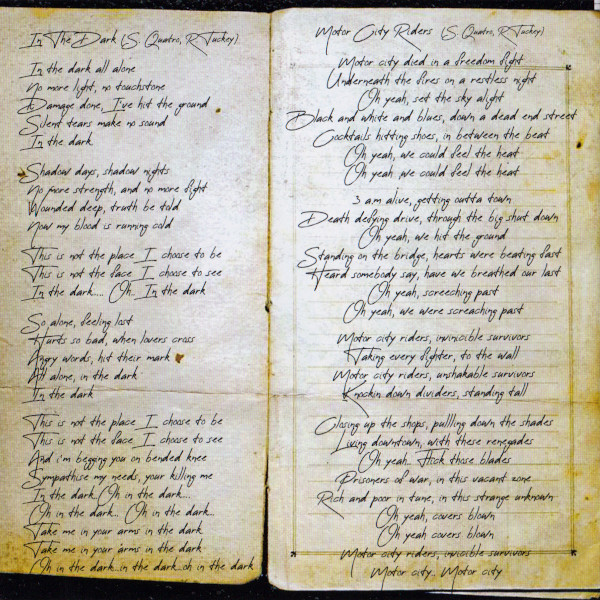 In The Dark (S. Quatro, R Tuckey)
In the dark all alone
No more light, no touchstone
Damage done, I've hit the ground
Silent tears make no sound
In the dark
Shadow days, shadow nights
No more strength, and no more fight
Wounded deep, truth be told
Now my blood is running cold
This is not the place I choose to be
This is not the face I choose to see
In the dark..... Oh.. In the dark
So alone, feeling lost
Hurts so bad, when lovers cross
Angry words, hit their mark
All alone, in the dark
In the dark
This is not the place I choose to be
This is not the face I choose to see
And i'm begging you on bended knee
Sympathise my needs, your killing me
In the dark Oh in the dark...
Oh in the dark... Oh in the dark..
Take me in your arms in the dark
Take me in your arms in the dark
Oh in the dark...in the dark..oh in the dark
Motor City Riders (S. Quatro, R.Tuckey)
Motor city died in a freedom fight
Underneath the fires on a restless night
Oh yeah, set the sky alight
Black and white and blues, down a dead end street
Cocktails hitting shoes, in between the beat
Oh yeah, we could feel the heat
Oh yeah, we could feel the heat
3 am alive, getting outta town
Death defying drive, through the big shut down
Oh yeah, we hit the ground
Standing on the bridge, hearts were beating fast
Heard somebody say, have we breathed our last
Oh yeah, screeching past
Oh yeah, we were screaching past
Motor city riders, invinicible survivors
Taking every fighter, to the wall
Motor city riders, unshakable survivors
Knockin down dividers, standing tall
Closing up the shops, pullling down the shades
Living downtown, with these renegades
Oh yeah.. Flick those blades
Prisoners of war, in this vacant zone
Rich and poor in tune, in this strange unknown
Oh yeah, covers blown
Oh yeah covers blown
Motor city riders, invicible survivors
Motor city.. Motor city